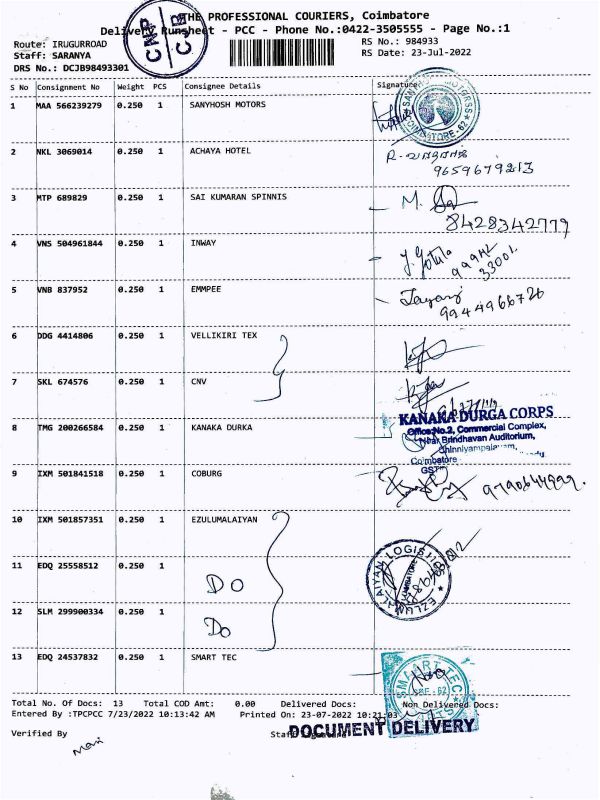 THE PROFESSIONAL COURIERS, Coimbatore
Delivery Runsheet - PCC - Phone No.:0422-3505555 - Page No.:1
CMP
CJB
Route: IRUGURROAD
Staff: SARANYA
DRS No.: DCJB98493301
RS No.: 984933
RS Date: 23-Jul-2022
S No Consignment No Weight PCS Consignee Details Signature
1 MAA 566239279 0.250 1 SANYHOSH MOTORS
2 NKL 3069014 0.250 1 ACHAYA HOTEL
9659679213
3 MTP 689829 0.250 1 SAI KUMARAN SPINNIS
8428342779
4 VNS 504961844 0.250 1 INWAY
5 VNB 837952 0.250 1 EMMPEE
9944966726
6 DDG 4414806 0.250 1 VELLIKIRI TEX
7 SKL 674576 0.250 1 CNV
8 TMG 200266584 0.250 1 KANAKA DURKA
KANAKA DURGA CORPS
Office:No.2, Commercial Complex,
Near Brindhavan Auditorium,
Chinniyampalayam,
Coimbatore
GST
9 IXM 501841518 0.250 1 COBURG
9790644999.
10 IXM 501857351 0.250 1 EZULUMALAIYAN
11 EDQ 25558512 0.250 1
Do
12 SLM 299900334 0.250 1
Do
13 EDQ 24537832 0.250 1 SMART TEC
SMART TEC
Total No. Of Docs: 13 Total COD Amt: 0.00 Delivered Docs: Non Delivered Docs:
Entered By :TPCPCC 7/23/2022 10:13:42 AM Printed On: 23-07-2022 10:21:03
Verified By Staff Signature
DOCUMENT DELIVERY